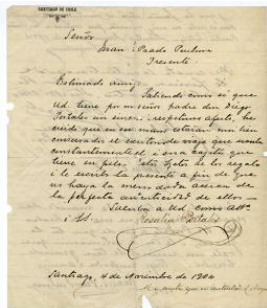 SANTIAGO DE CHILE
Señor
Juan Prado
Presente
Estimado amigo:
Sabiendo como sé que
Ud. tiene por mi señor padre don Diego
Portales un sincero i respetuoso afecto, he
creido que en sus manos estarán mui bien
el de viaje que usaba
constantemente él, i una cajita que
tiene su pelo. Estos objetos se los regalo
i le escribo la presente a fin de que
no haya la menor duda acerca de
la perfecta autenticidad de ellos.
Saluda a Ud. como
i SS. Rosalía Portales
Santiago, 4 de Noviembre de 1904